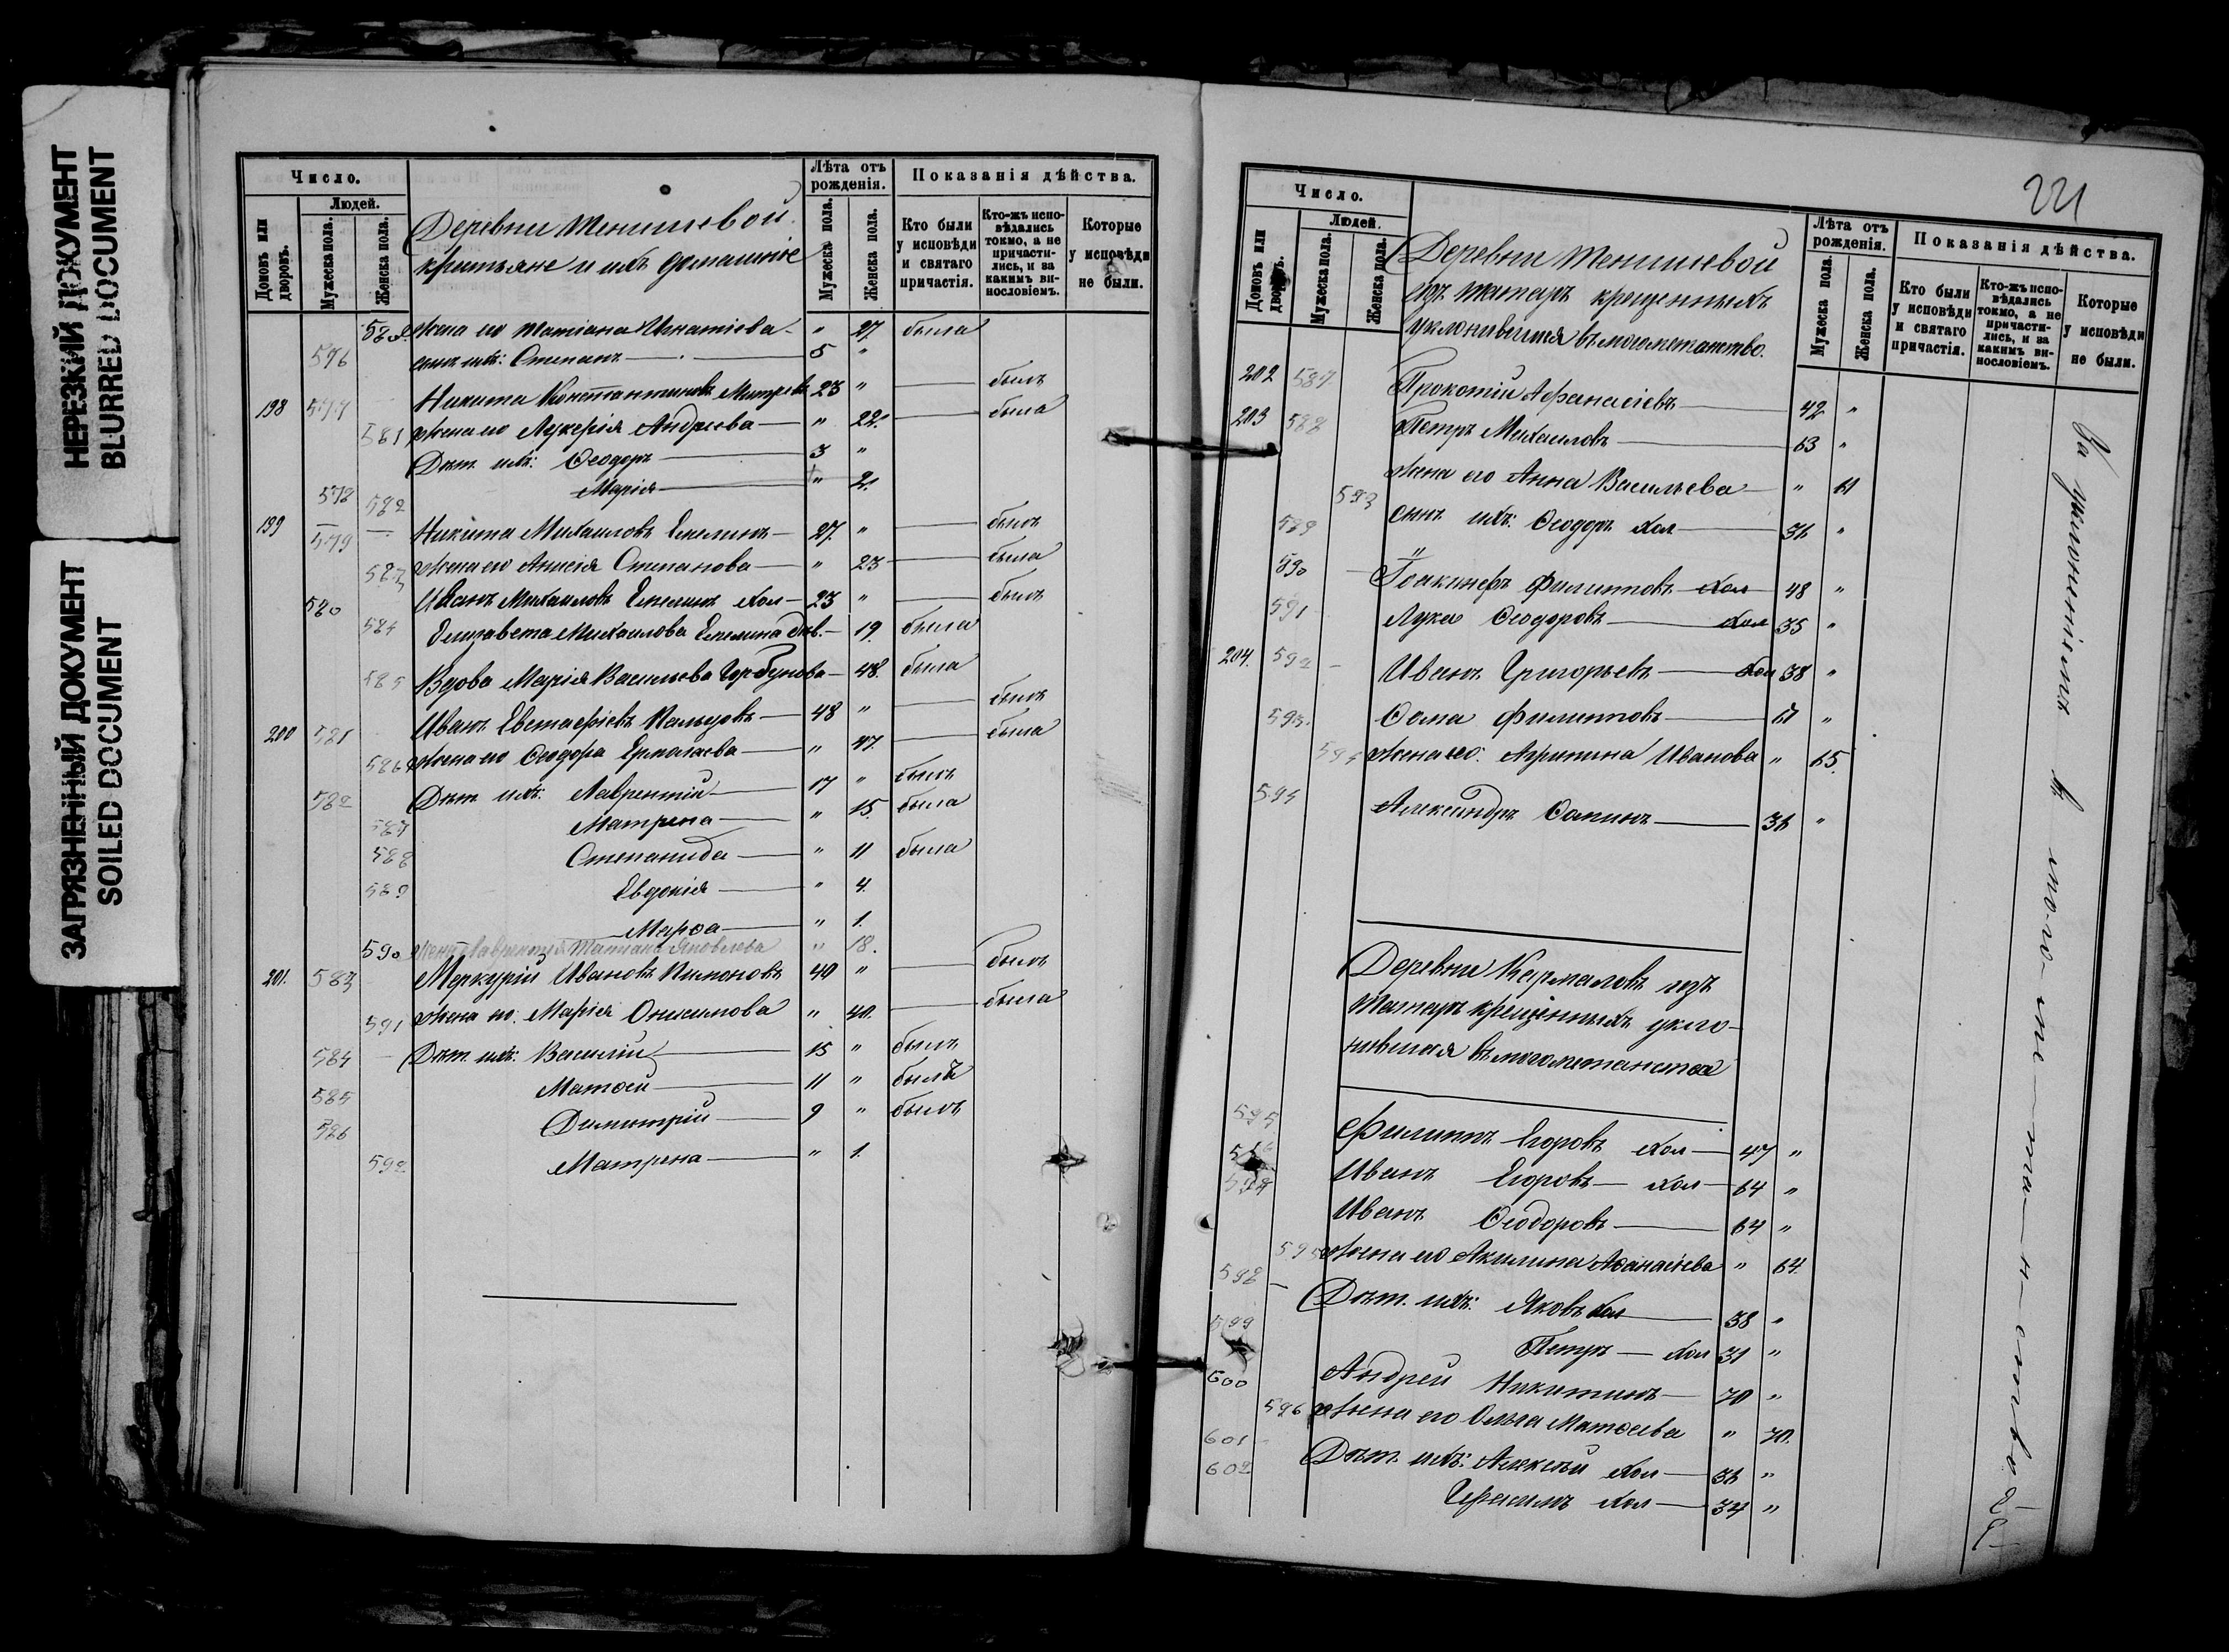 НЕРЕЗКИЙ ДОКУМЕНТ
BLURRED DOCUMENT
ЗАГРЯЗНЕННЫЙ ДОКУМЕНТ
SOILED DOCUMENT
Число.
Людей.
Домовъ или дворовъ.
Мужеска пола.
Женска пола.
Деревни Тенишевой
крестьяне и ихъ домашніе
Лѣта отъ рожденія.
Мужеска пола.
Женска пола.
Показанія дѣйства.
Кто были у исповѣди и святаго причастія.
Кто-жъ исповѣдались токмо, а не причастились, и за какимъ винословіемъ.
Которые у исповѣди не были.
580 Жена его Татіана Игнатіева " 27 была
576 сынъ ихъ: Степанъ 5 "
198 577 Никита Константиновъ 23 " былъ
581 Жена его Лукерія Андреева " 22 была
578 Дѣт. ихъ: Ѳеодоръ 3 "
582 Марія " 2
199 579 Никита Михаиловъ Емелинъ 27 " былъ
583 Жена его Анисія Степанова " 23 была
580 Иванъ Михаиловъ Емелинъ хол 23 " былъ
584 Елизавета Михаилова Емелина дѣв. 19 была
585 Вдова Марія Васильева Горбунова 48 была
200 581 Иванъ Евстафіевъ Кальцовъ 48 " былъ
586 Жена его Ѳеодора Ермолаева " 47 была
582 Дѣт. ихъ: Лаврентій 17 " былъ
587 Матрена " 15 была
588 Степанида " 11 была
589 Евдокія " 4
Марѳа " 1
590 Жена Лаврентія Татіана Яковлева " 18
201. 583 Меркурій Ивановъ 40 " былъ
591 Жена его Марія Онисимова " 40 была
584 Дѣт. ихъ: Василій 15 " былъ
585 Матѳей 11 " былъ
586 Димитрій 9 " былъ
592 Матрена " 1
221
Число.
Людей.
Домовъ или дворовъ.
Мужеска пола.
Женска пола.
Деревни Тенишевой
изъ татаръ крещенныхъ
уклонившіяся въ магометанство.
Лѣта отъ рожденія.
Мужеска пола.
Женска пола.
Показанія дѣйства.
Кто были у исповѣди и святаго причастія.
Кто-жъ исповѣдались токмо, а не причастились, и за какимъ винословіемъ.
Которые у исповѣди не были.
202 587 Прокопій Аѳанасіевъ 42 "
203 588 Петръ Михаиловъ 63 "
593 Жена его Анна Васильева "
589 сынъ ихъ: Ѳеодоръ хол "
590 Филипповъ хол 48 "
591 Лука Ѳеодоровъ хол 35 "
204. 592 Иванъ Григорьевъ хол 38 "
593 Ѳома Филипповъ "
594 Жена его: Агрипина Иванова " 65
594 Александръ Ѳоминъ "
Деревни Кармаловъ изъ
Татаръ крещенныхъ укло-
нившіяся въ магометанство
595 Филиппъ Егоровъ хол 47 "
596 Иванъ Егоровъ хол 64 "
597 Иванъ Ѳеодоровъ 64 "
595 Жена его Акилина Аѳанасіева " 64
598 Дѣт. ихъ: Яковъ хол 38 "
599 Петръ хол 31 "
600 Андрей Никитинъ 70 "
596 Жена его Ольга Матѳеева " 70
601 Дѣт. ихъ: Алексѣй хол "
602 Герасимъ хол 34 "
За уклоненіемъ въ магометанство